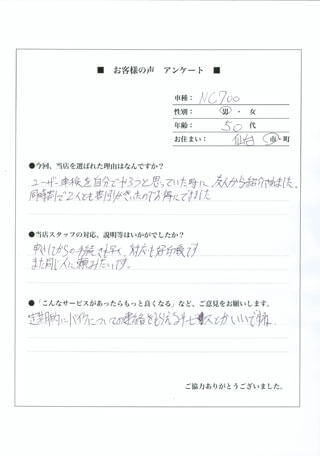 ■ お客様の声 アンケート ■
車種： NC700
性別： 男 ・ 女
年齢： 50 代
お住まい： 仙台 市・町
●今回、当店を選ばれた理由はなんですか？
ユーザー車検を自分でやろうと思っていた時に、友人から紹介されました。
同時割で2人とも割引がきいたのでお得にできました
●当店スタッフの対応、説明等はいかがでしたか？
手続きも早く、対応も好印象です
また同じ人に頼みたいです。
●「こんなサービスがあったらもっと良くなる」など、ご意見をお願いします。
定期的にバイクについての
ご協力ありがとうございました。